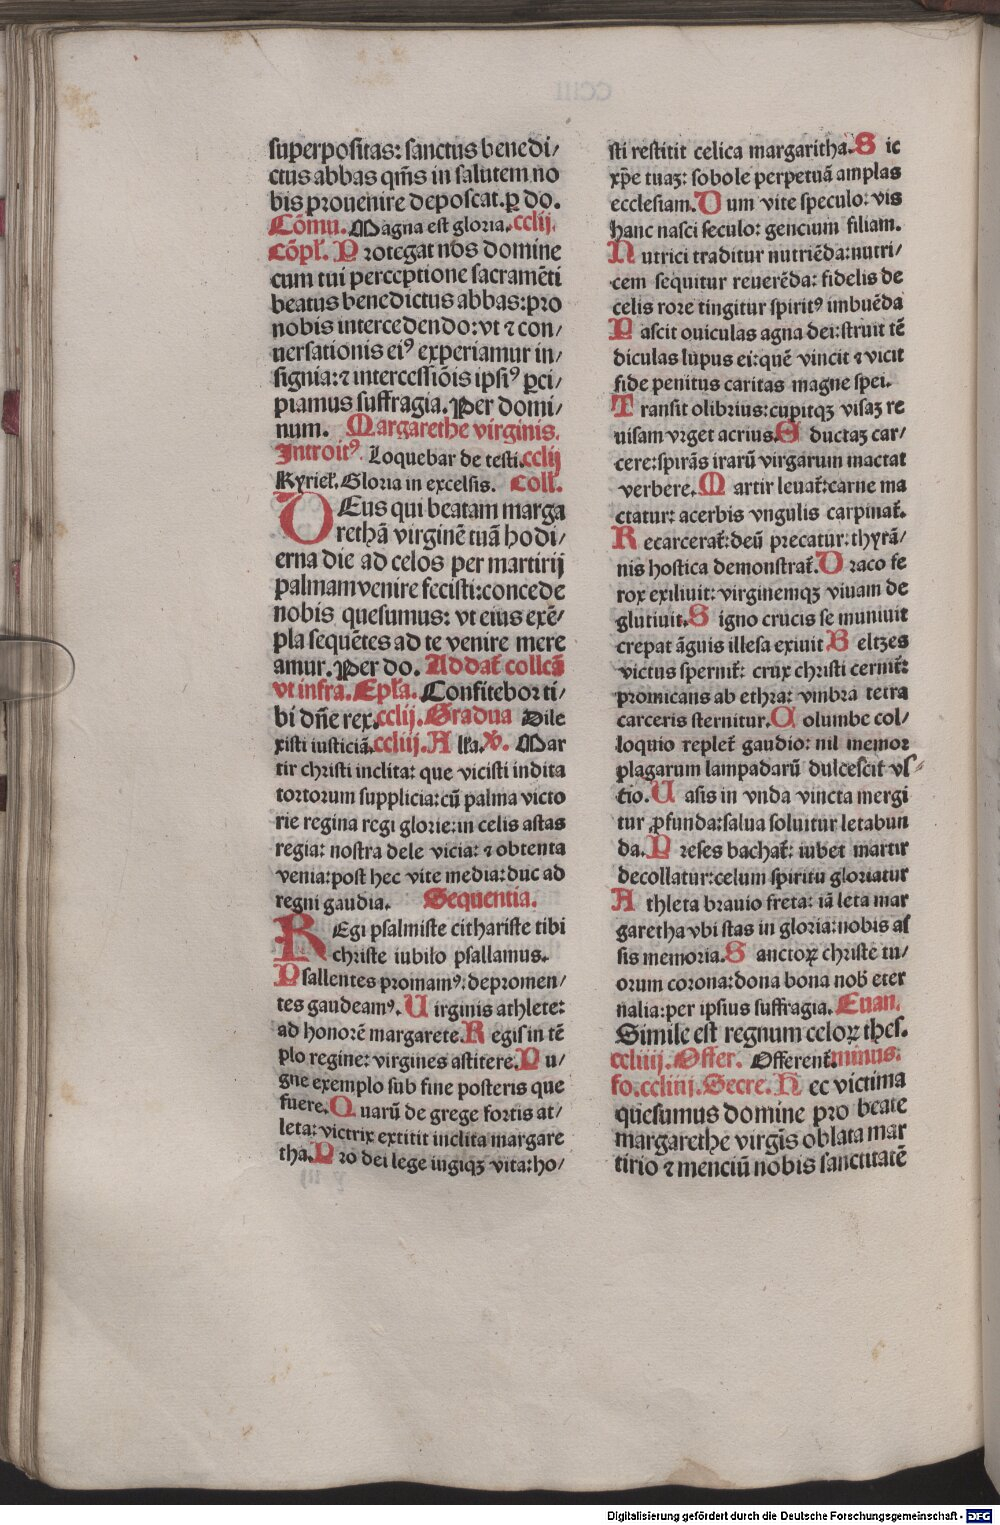 superpositas: sanctus benedi/
ctus abbas qm̄s in salutem no
bis prouenire deposcat. ꝑ do.
Cōmu. Magna est gloria. cclij.
Cōpl. Protegat nos domine
cum tui perceptione sacramēti
beatus benedictus abbas: pro
nobis intercedendo: vt ⁊ con/
uersationis eiꝰ experiamur in/
signia: ⁊ intercessiōis ipsiꝰ ꝑci/
piamus suffragia. Per domi/
num. Margarethe virginis.
Introitꝰ. Loquebar de testi. cclij
Kyriel. Gloria in excelsis. Coll.
DEus qui beatam marga
rethā virginē tuā hodi/
erna die ad celos per martirij
palmam venire fecisti: concede
nobis quesumus: vt eius exē/
pla sequētes ad te venire mere
amur. Per do. Addat̄ collcā
vt infra. Epła. Confitebor ti/
bi dn̄e rex. cclij. Gradua Dile
xisti iusticiā. ccliij. A łła. V. Mar
tir christi inclita: que vicisti indita
tortorum supplicia: cū palma victo
rie regina regi glorie: in celis astas
regia: nostra dele vicia: ⁊ obtenta
venia: post hec vite media: duc ad
regni gaudia. Sequentia.
REgi psalmiste cithariste tibi
christe iubilo psallamus.
Psallentes promamꝰ: depromen/
tes gaudeamꝰ. Uirginis athlete:
ad honorē margarete. Regis in tē
plo regine: virgines astitere. Pu/
gne exemplo sub fine posteris que
fuere. Quarū de grege fortis at/
leta: victrix extitit inclita margare
tha. Pro dei lege iugiqꝫ vita: ho/
sti restitit celica margaritha. Sic
xp̄e tuaꝫ: sobole perpetuā amplas
ecclesiam. Dum vite speculo: vis
hanc nasci seculo: gencium filiam.
Nutrici traditur nutriēda: nutri/
cem sequitur reuerēda: fidelis de
celis rore tingitur spiritꝰ imbuēda
Pascit ouiculas agna dei: struit tē
diculas lupus ei: quē vincit ⁊ vicit
fide penitus caritas magne spei.
Transit olibrius: cupitqꝫ visaꝫ re
uisam vrget acrius. Eductaꝫ car/
cere: spirās irarū virgarum mactat
verbere. Martir leuat̄: carne ma
ctatur: acerbis vngulis carpinat̄.
Recarcerat̄: deū precatur: thyrā/
nis hostica demonstrat̄. Draco fe
rox exiliuit: virginemqꝫ viuam de
glutiuit. Signo crucis se muniuit
crepat āguis illesa exiuit Beltzes
victus spernit̄: crux christi cernit̄:
promicans ab ethra: vmbra tetra
carceris sternitur. Columbe col/
loquio replet̄ gaudio: nil memor
plagarum lampadarū dulcescit vs
tio. Uasis in vnda vincta mergi
tur ꝓfunda: salua soluitur letabun
da. Preses bachat̄: iubet martir
decollatur: celum spiritu gloriatur
Athleta brauio freta: iā leta mar
garetha vbi stas in gloria: nobis as
sis memoria. Sanctoꝝ christe tu/
orum corona: dona bona nob̄ eter
nalia: per ipsius suffragia. Euan.
Simile est regnum celoꝝ thes.
ccliiij. Offer. Offerent̄. minus.
fo. ccliiij. Secre. Hec victima
quesumus domine pro beate
margarethe virgīs oblata mar
tirio ⁊ menciū nobis sanctitatē
Digitalisierung gefördert durch die Deutsche Forschungsgemeinschaft - DFG